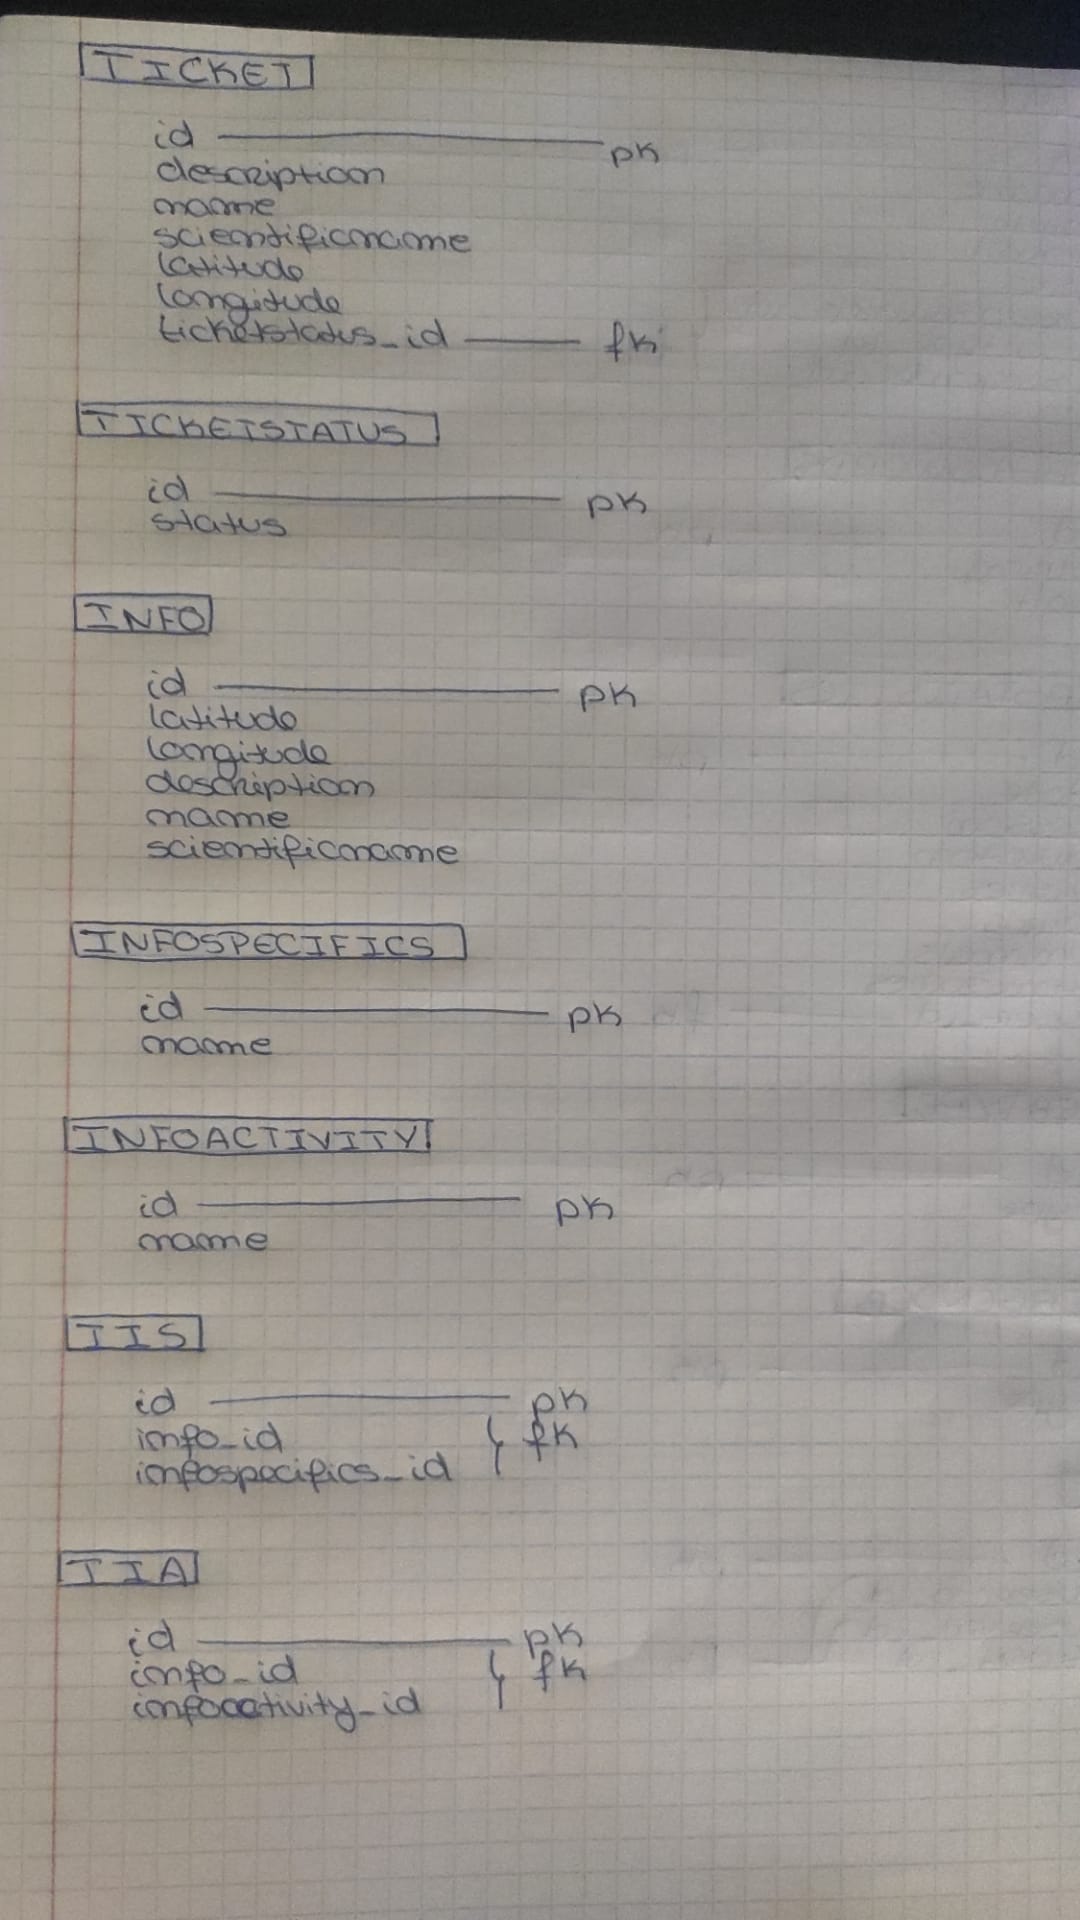 TICKET
id pk
description
name
scientificname
latitude
longitude
ticketstatus_id fk
TICKETSTATUS
id pk
status
INFO
id pk
latitude
longitude
description
name
scientificname
INFOSPECIFICS
id pk
name
INFOACTIVITY
id pk
name
IIS
id pk
info_id fk
infospecifics_id
IIA
id pk
info_id fk
infoactivity_id